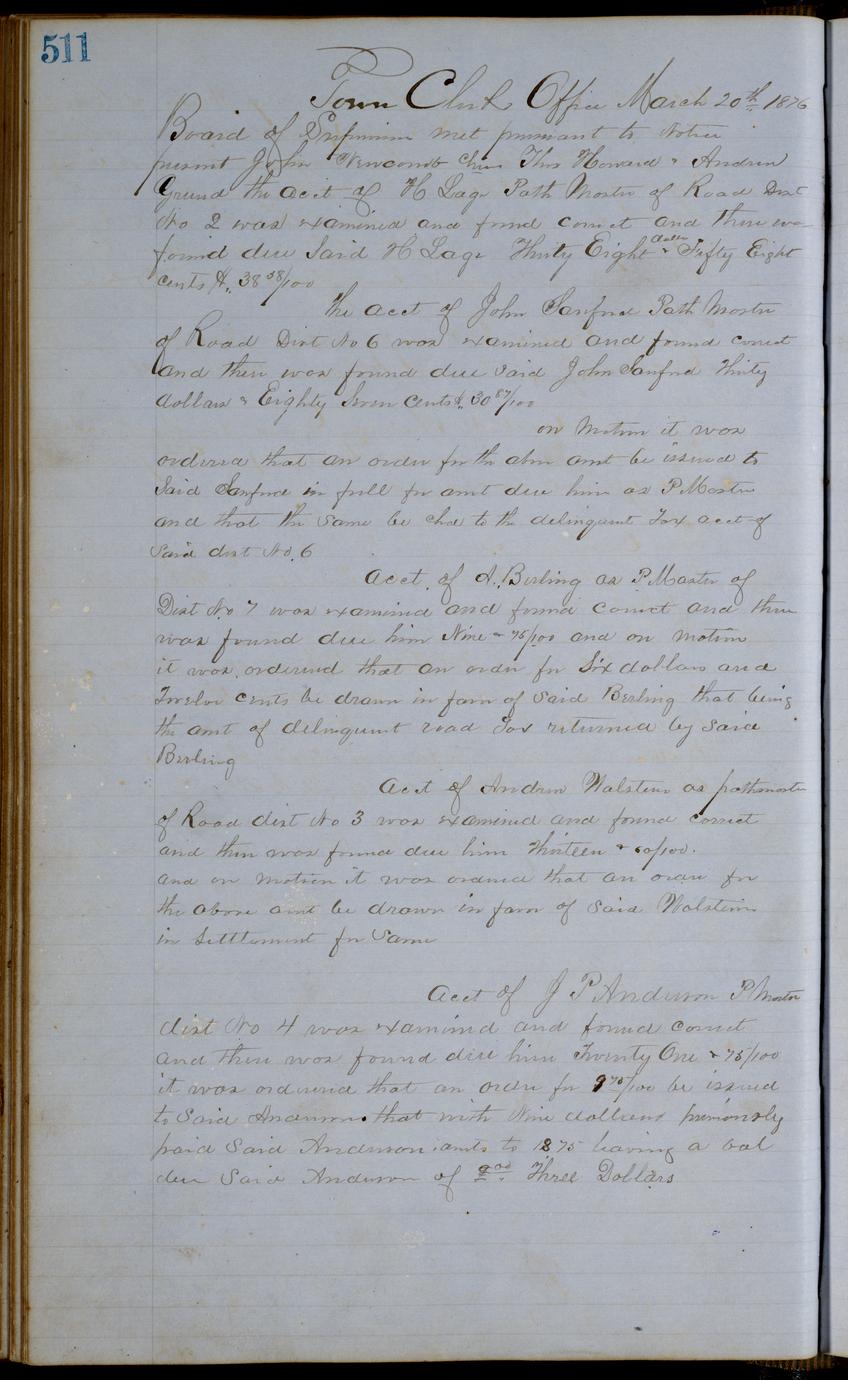 511
Town Clerk Office March 20th 1876
Board of Supervisors met pursuant to Notice
present John Newcomb Chm Thos Howard & Andrew
the acct of H Lage Path Master of Road Dist
No 2 was examined and found correct and there was
found due Said H Lage Thirty Eight dollars & Fifty Eight
cents $. 38 58/100
the acct of John Sanford Path Master
of Road Dist No 6 was examined and found correct
and there was found due Said John Sanford Thirty
dollars & Eighty Seven Cents $. 30 87/100
on Motion it was
ordered that an order for the abov amt be issued to
Said Sanford in full for amt due him as P Master
and that the Same be chd to the delinquent Tax acct of
Said dist No. 6
Acct. of A. Berling as P. Master of
Dist No 7 was examined and found correct and there
was found due him Nine & 75/100 and on motion
it was ordered that an order for Six dollars and
Twelve cents be drawn in favor of Said Berling that being
the amt of delinquent road Tax returned by Said
Berling
Acct of Andrew Walstein as pathmaster
of Road dist No 3 was examined and found correct
and there was found due him Thirteen & 60/100.
and on motion it was ordered that an order for
the above amt be drawn in favor of Said Walstein
in Settlement for Same
Acct of J P Anderson P Master
dist No 4 was examined and found correct
and there was found due him Twenty One & 75/100
it was ordered that an order for 9 75/100 be issued
to Said Anderson that with Nine dollars previously
paid Said Anderson amts to 1875 leaving a bal
due Said Anderson of Three Dollars